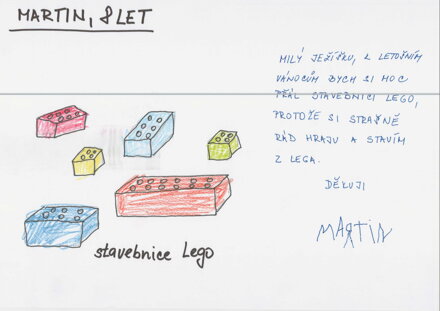 MARTIN, 8 LET
MILÝ JEŽÍŠKU, K LETOŠNÍM
VÁNOCŮM BYCH SI MOC
PŘÁL STAVEBNICI LEGO,
PROTOŽE SI STRAŠNĚ
RÁD HRAJU A STAVÍM
Z LEGA.
DĚKUJI
MARTIN
stavebnice Lego